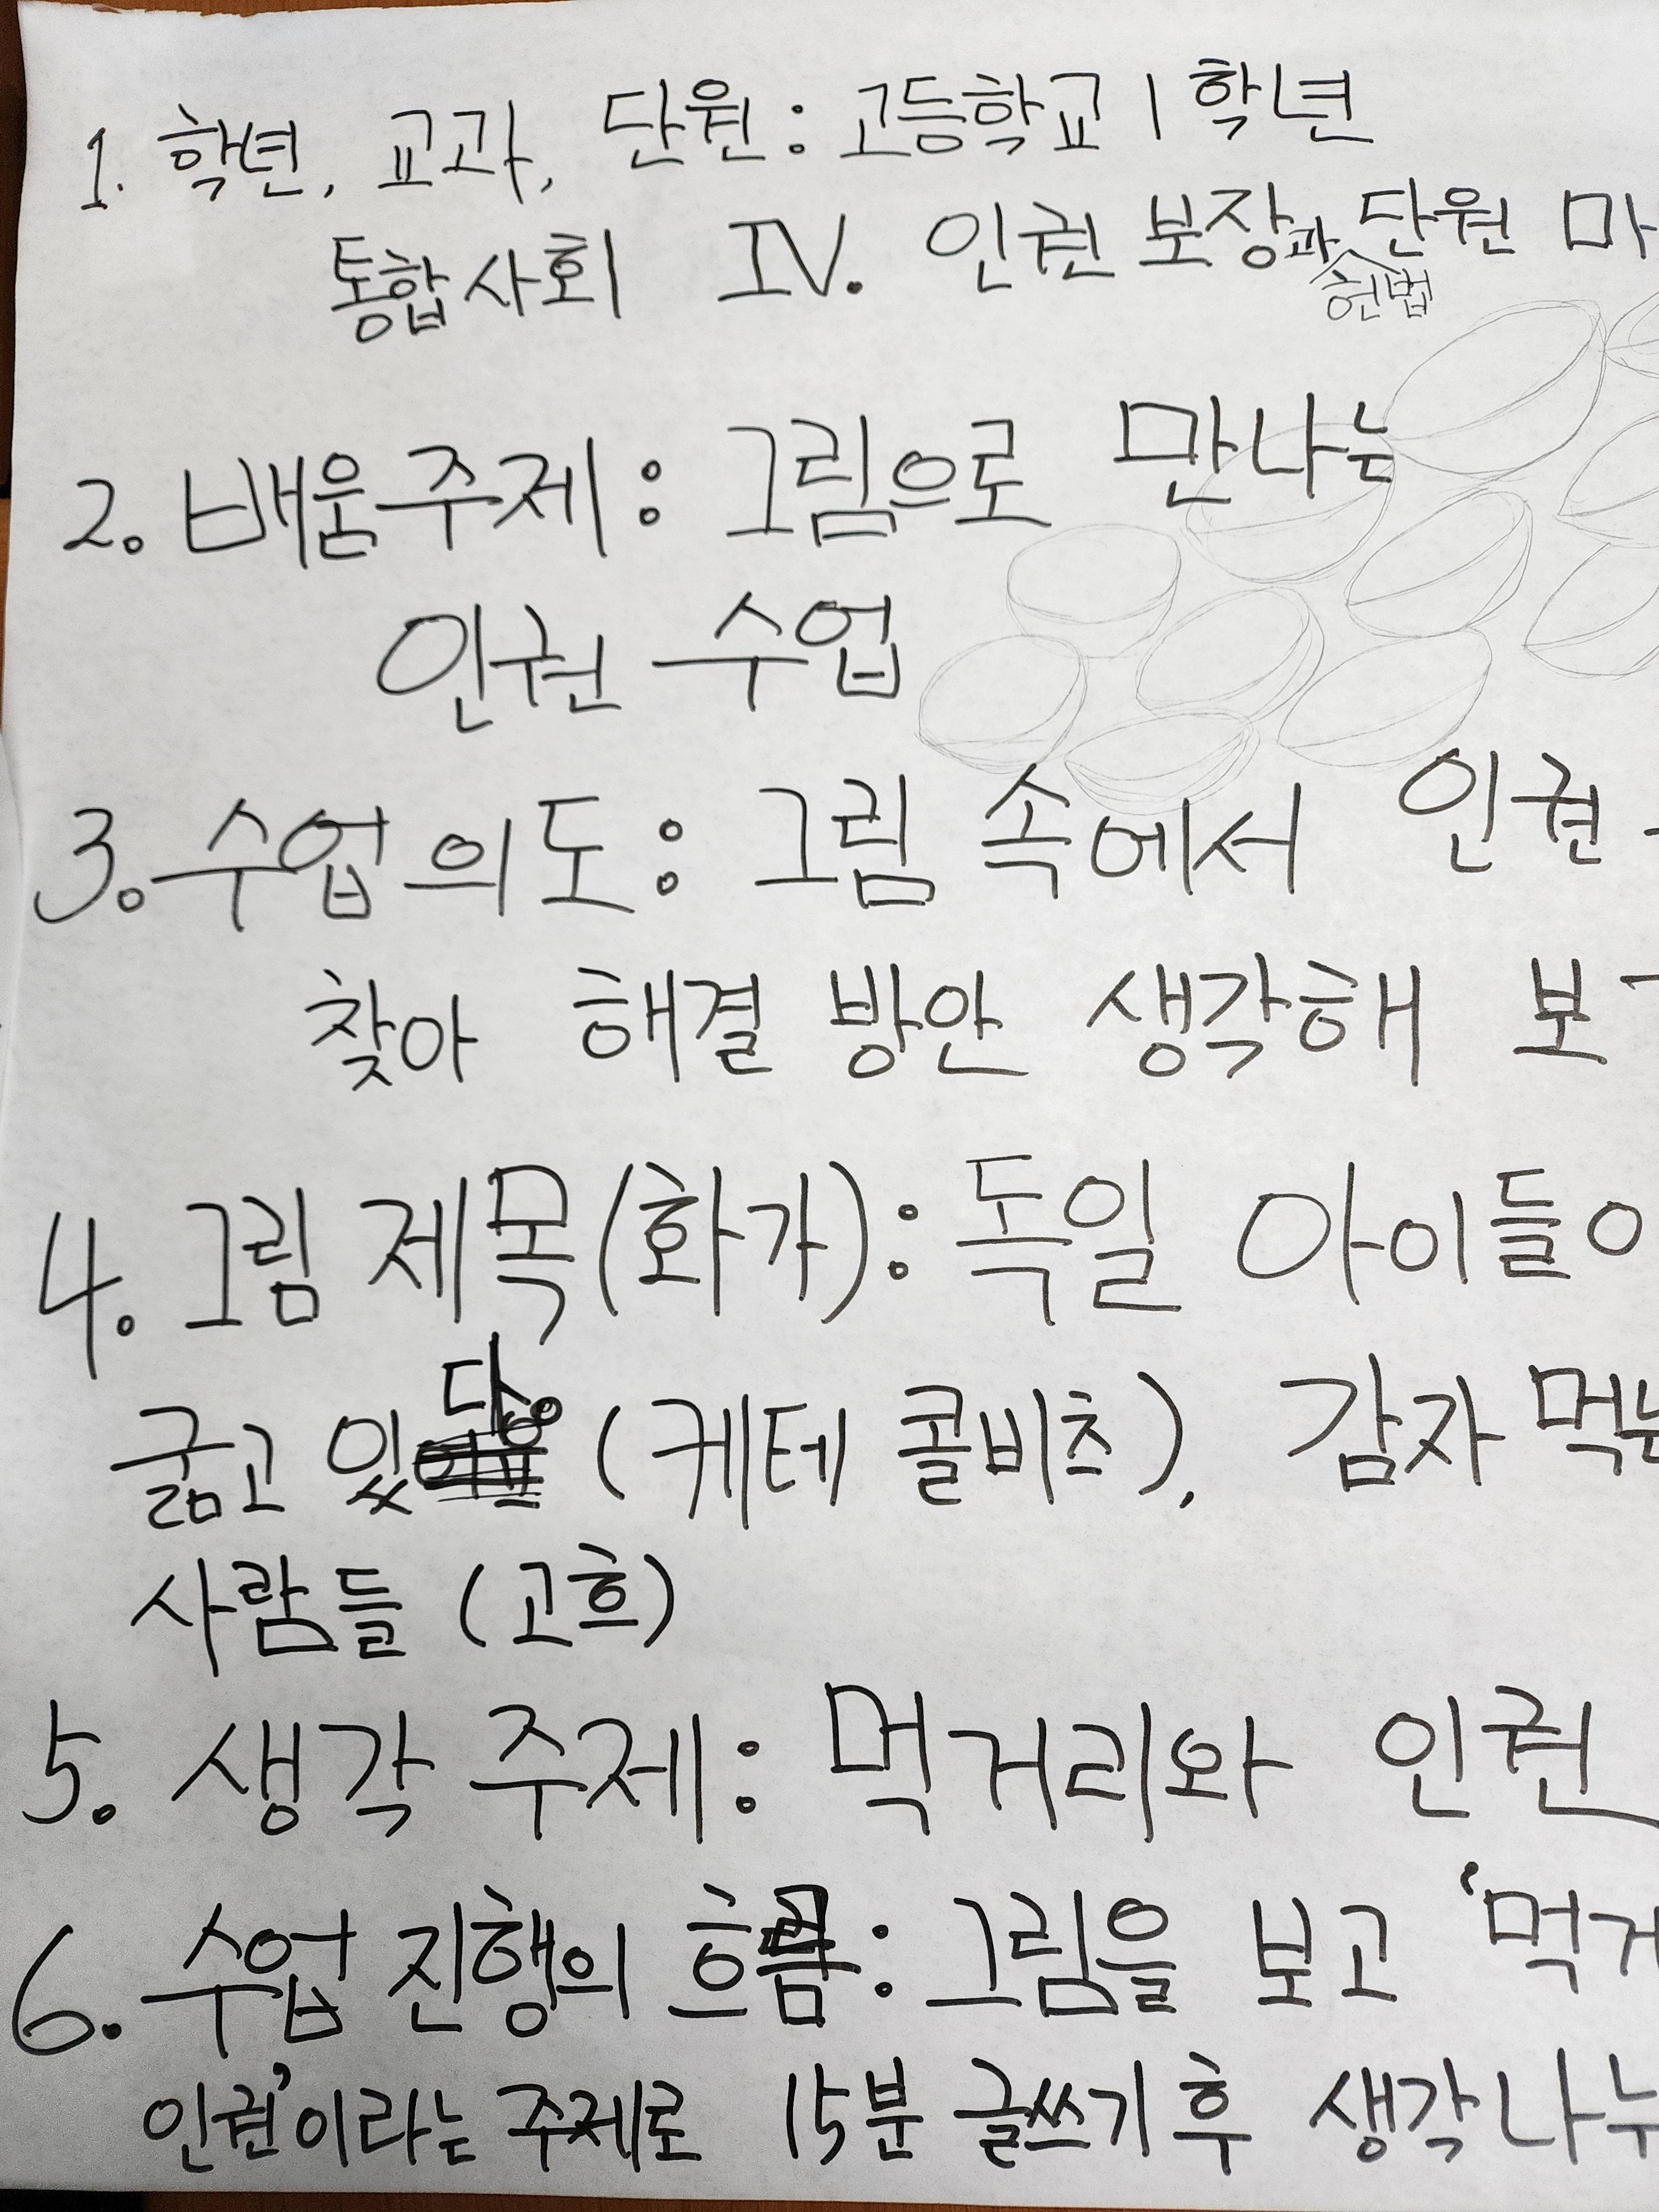 1. 학년, 교과, 단원 : 고등학교 1학년
통합사회 IV. 인권 보장과 헌법 단원 마
2. 배움주제 : 그림으로 만나는
인권 수업
3. 수업의도 : 그림 속에서 인권
찾아 해결 방안 생각해 보
4. 그림 제목(화가) : 독일 아이들이
굶고 있다 (케테 콜비츠), 감자 먹는
사람들 (고흐)
5. 생각 주제 : 먹거리와 인권
6. 수업 진행의 흐름 : 그림을 보고 '먹거
인권'이라는 주제로 15분 글쓰기 후 생각나누